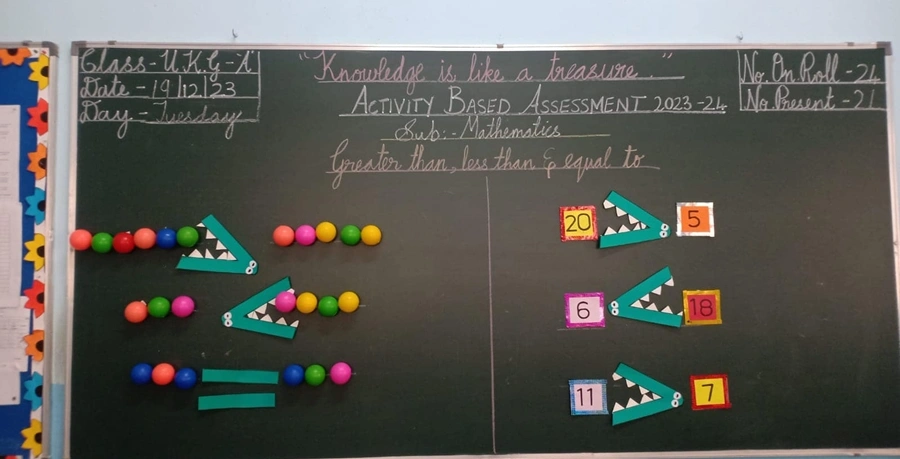 Class - U.K.G - 'A'
Date - 19/12/23
Day - Tuesday
"Knowledge is like a treasure."
ACTIVITY BASED ASSESSMENT 2023-24
Sub:- Mathematics
Greater than, less than & equal to
No. On Roll - 24
No. Present - 21
20 5
6 18
11 7